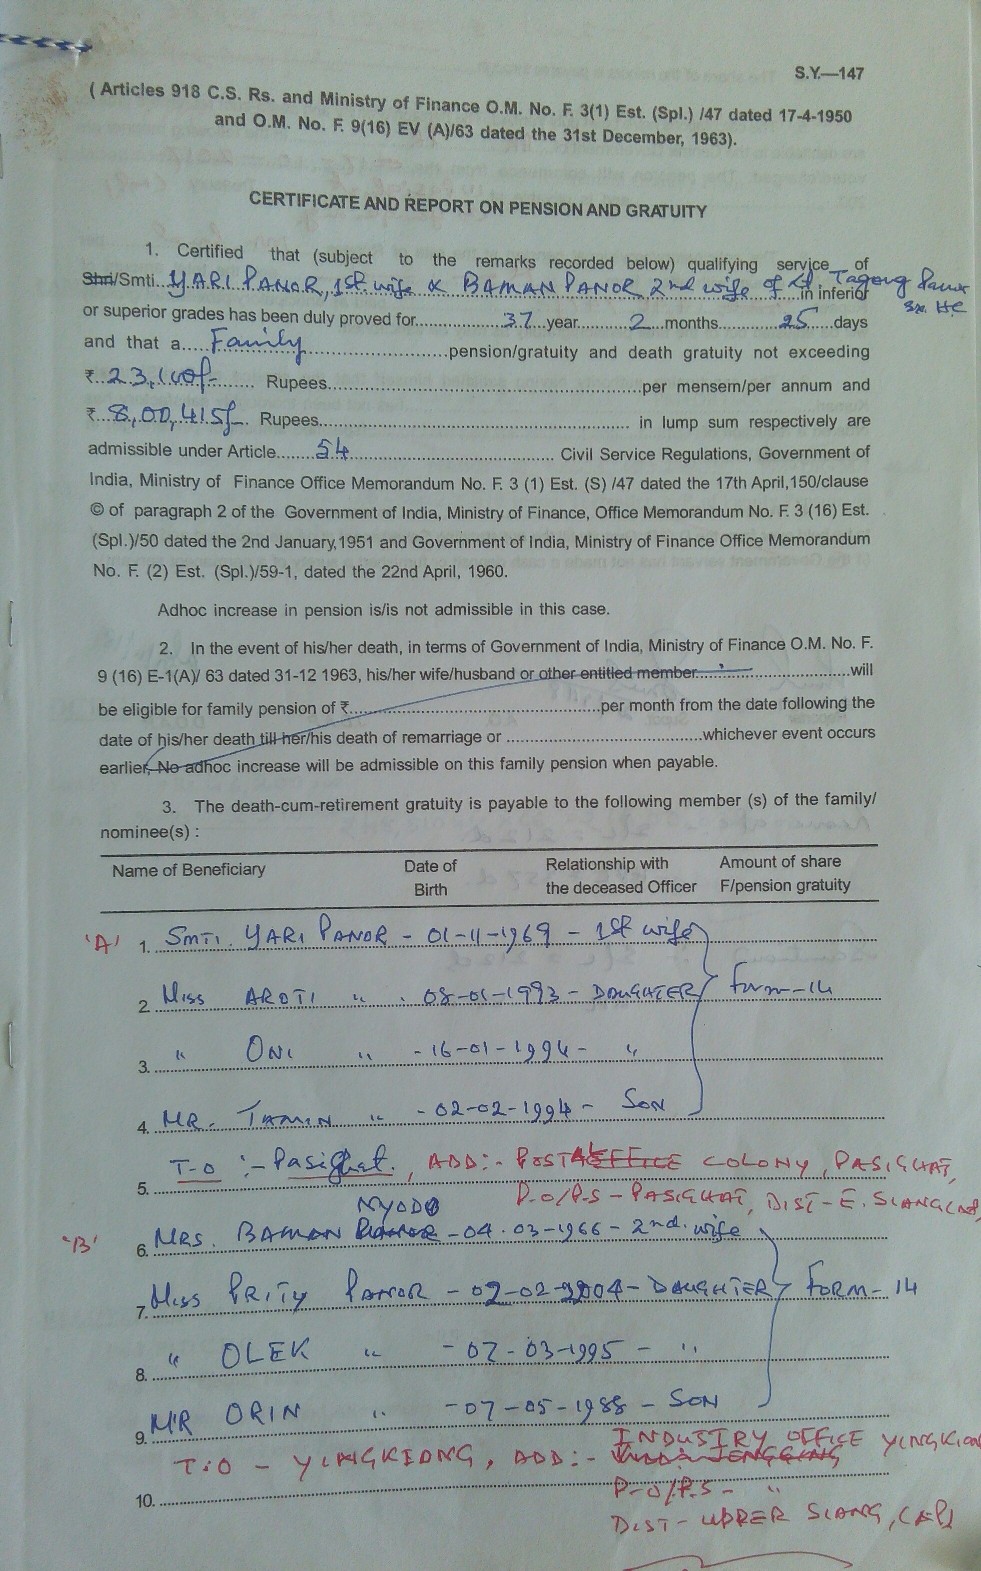 S.Y.—147
( Articles 918 C.S. Rs. and Ministry of Finance O.M. No. F. 3(1) Est. (Spl.) /47 dated 17-4-1950
and O.M. No. F. 9(16) EV (A)/63 dated the 31st December, 1963).
CERTIFICATE AND REPORT ON PENSION AND GRATUITY
1. Certified that (subject to the remarks recorded below) qualifying service of
Shri/Smti..YARI PANOR, 1st wife & BAMAN PANOR 2nd wife of Lt Tagong Panor in inferior
Ex. HC
or superior grades has been duly proved for..........37...year..........2...months..........25.....days
and that a.....Family........................pension/gratuity and death gratuity not exceeding
₹..23,100/-........ Rupees...............................................per mensem/per annum and
₹...8,00,415/-.. Rupees............................................... in lump sum respectively are
admissible under Article........54.................................... Civil Service Regulations, Government of
India, Ministry of Finance Office Memorandum No. F. 3 (1) Est. (S) /47 dated the 17th April,150/clause
© of paragraph 2 of the Government of India, Ministry of Finance, Office Memorandum No. F. 3 (16) Est.
(Spl.)/50 dated the 2nd January,1951 and Government of India, Ministry of Finance Office Memorandum
No. F. (2) Est. (Spl.)/59-1, dated the 22nd April, 1960.
Adhoc increase in pension is/is not admissible in this case.
2. In the event of his/her death, in terms of Government of India, Ministry of Finance O.M. No. F.
9 (16) E-1(A)/ 63 dated 31-12 1963, his/her wife/husband or other entitled member..............................will
be eligible for family pension of ₹...............................................per month from the date following the
date of his/her death till her/his death of remarriage or .....................................whichever event occurs
earlier, No adhoc increase will be admissible on this family pension when payable.
3. The death-cum-retirement gratuity is payable to the following member (s) of the family/
nominee(s) :
Name of Beneficiary Date of Birth Relationship with the deceased Officer Amount of share F/pension gratuity
'A' 1. SMTI. YARI PANOR - 01-11-1969 - 1st wife
2. Miss AROTI " - 08-01-1993 - DAUGHTER Form-14
3. " ONI " - 16-01-1994 - "
4. MR. TAMIN " - 02-02-1994 - SON
5. T-O :- Pasighat. ADD:- POST OFFICE COLONY, PASIGHAT,
P-O/P-S - PASIGHAT, DIST - E. SIANG
NYODO
'B' 6. MRS. BAMAN PANOR - 04-03-1966 - 2nd wife
7. Miss PRITY PANOR - 02-02-2004 - DAUGHTER FORM-14
8. " OLEK " - 07-03-1995 - "
9. MR ORIN " - 07-05-1988 - SON
T:O - YINGKIONG, ADD:- INDUSTRY OFFICE YINGKIONG
10. P-O/P.S - "
DIST - UPPER SIANG, (AP)